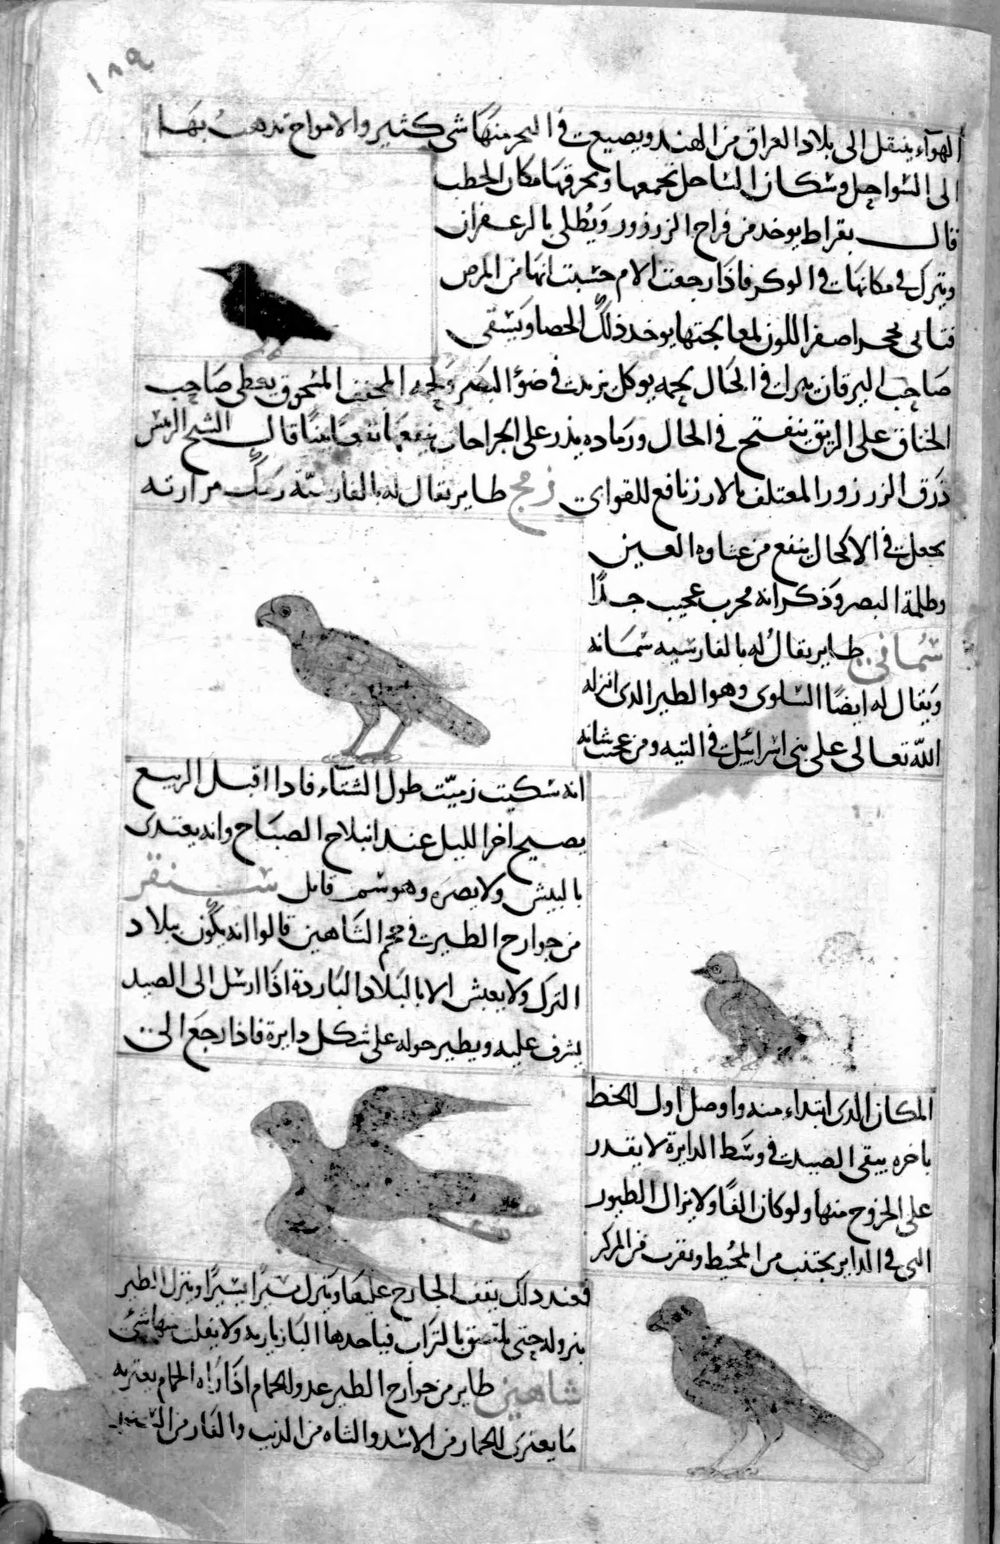 ١٨٩
الهوآء ينتقل الى بلاد العراق من الهند ويصيع في البحر منها شى كثير والامواج تذهب بها
الى السواحل وسكان الساحل تجمعها وتحرقها مكان الحطب
قال بقراط يوخد من فراخ الزرزور ويُطلى بالزعفران
ويترك في مكانها في الوكر فاذا رجعت الام حسبت انها من المرض
فتاتى بحجر اصفر اللون لمعالجتها يوخد ذلك الحصا ويسقى
صاحب اليرقان يبرا في الحال لحمه يوكل يزيد في ضوء البصر ولحمه المجفف المسحوق يعطى صاحب
الخناق على الريق ينفتح في الحال ورماده يذر على الجراحات ينفعها نفعا بينًا قال الشيخ الرئيس
ذرق الزرزور المعتلف بالارز نافع للقوابى زمج طاير يقال له بالفارسيّة مرارته
يجعل في الاكحال ينفع من غشاوة العين
وظلمة البصر وذكر انه مجرب عجيب جدًا
سُمانى طاير يقالُ له بالفارسيه سمانه
ويقال له ايضًا السلوى وهو الطير الدى انزله
الله تعالى على بنى اسرائيل في التيه ومن عجيب شانه
انه سكيت زميّت طول الشتآء فادا اقبل الربيع
يصيح اخر الليل عند انبلاج الصباح وانه يغتدى
بالبيش ولا يضره وهو سم قاتل سنقر
من جوارح الطير في حجم الشاهين قالوا انه يكون ببلاد
الترك ولا يعيش الا بالبلاد الباردة اذا ارسل الى الصيد
يشرف عليه ويطير حوله على شكل دايرة فاذا رجع الى
المكان الدى ابتداء منه واوصل اول الخط
باخره يبقى الصيد في وسط الدايرة لا يقدر
على الخروج منها ولو كان الفًا ولا يزال الطيور
التى في الداير يجتنب من المحيط وتقرب من المركز
فعند دلك يقف الجارح عليها وينزل يسيرًا يسيرًا وينزل الطير
بنزوله حتى يلتصق بالتراب فياخدها البازيار يه ولا يفلت منها شئ
شاهين طاير من جوارح الطير عدو للحمام اذا راه الحمام يعتريه
ما يعترى للحمار من الاسد والشاة من الذيب والفار من